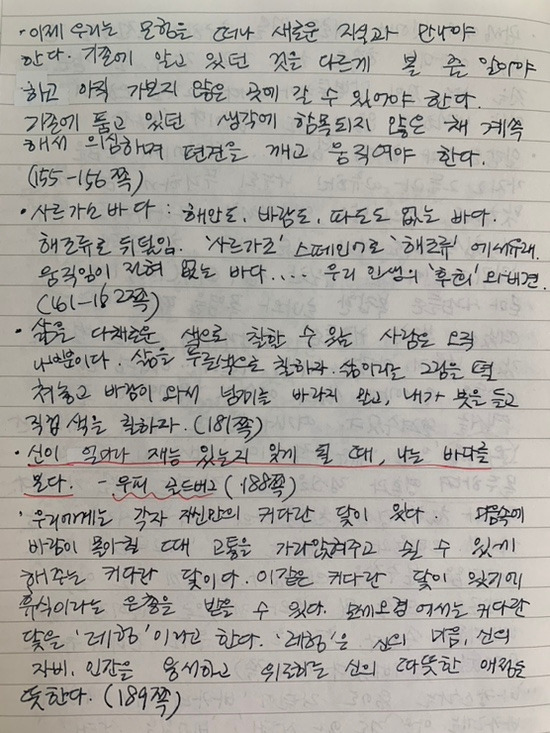 · 이제 우리는 모험을 떠나 새로운 지식과 만나야
한다. 기존에 알고 있던 것을 다르게 볼 줄 알아야
하고 아직 가보지 않은 곳에 갈 수 있어야 한다.
기존에 품고 있던 생각에 함몰되지 않은 채 계속
해서 의심하며 편견을 깨고 움직여야 한다.
(155-156쪽)
· 사르가소 바다 : 해안도, 바람도, 파도도 없는 바다.
해조류로 뒤덮임. '사르가조' 스페인어로 '해조류'에서 유래.
움직임이 전혀 없는 바다.... 우리 인생의 '후회'와 비견.
(161-162쪽)
· 삶을 다채로운 색으로 칠할 수 있는 사람은 오직
나뿐이다. 삶을 푸른빛으로 칠하라. 삶이라는 그림을 펼
쳐놓고 바람이 와서 넘기를 바라지 말고, 내가 붓을 들고
직접 색을 칠하자. (181쪽)
· 신이 얼마나 재능 있는지 잊게 될 때, 나는 바다를
본다. - 우피 골드버그 (188쪽)
· 우리에게는 각자 자신만의 커다란 닻이 있다. 마음속에
바람이 몰아칠 때 고통을 가라앉혀주고 쉴 수 있게
해주는 커다란 닻이다. 이같은 커다란 닻이 있기에
휴식이라는 은총을 받을 수 있다. 모세오경에서는 커다란
닻을 '레헴'이라고 한다. '레헴'은 신의 마음, 신의
자비, 인간을 용서하고 위로하는 신의 따뜻한 애정을
뜻한다. (189쪽)